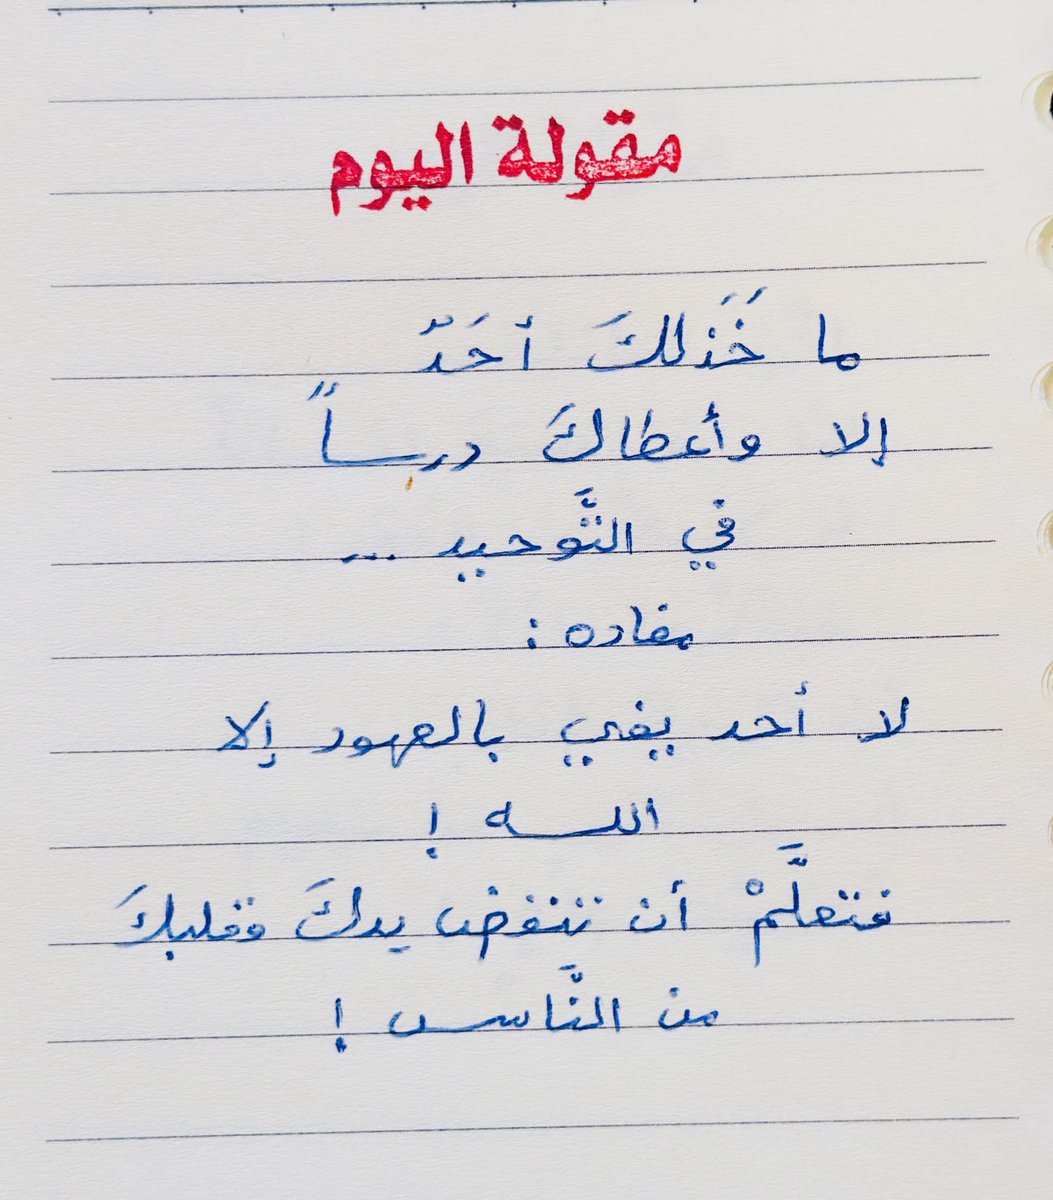 مقولة اليوم
ما خَذَلكَ أحَدّ
إلا وأعطاكَ درساً
في التَّوحيد ...
مفاده :
لا أحد يفي بالعهود إلا
اللـه !
فتعلَّمْ أن تنفض يدكَ وقلبكَ
من النَّاس !